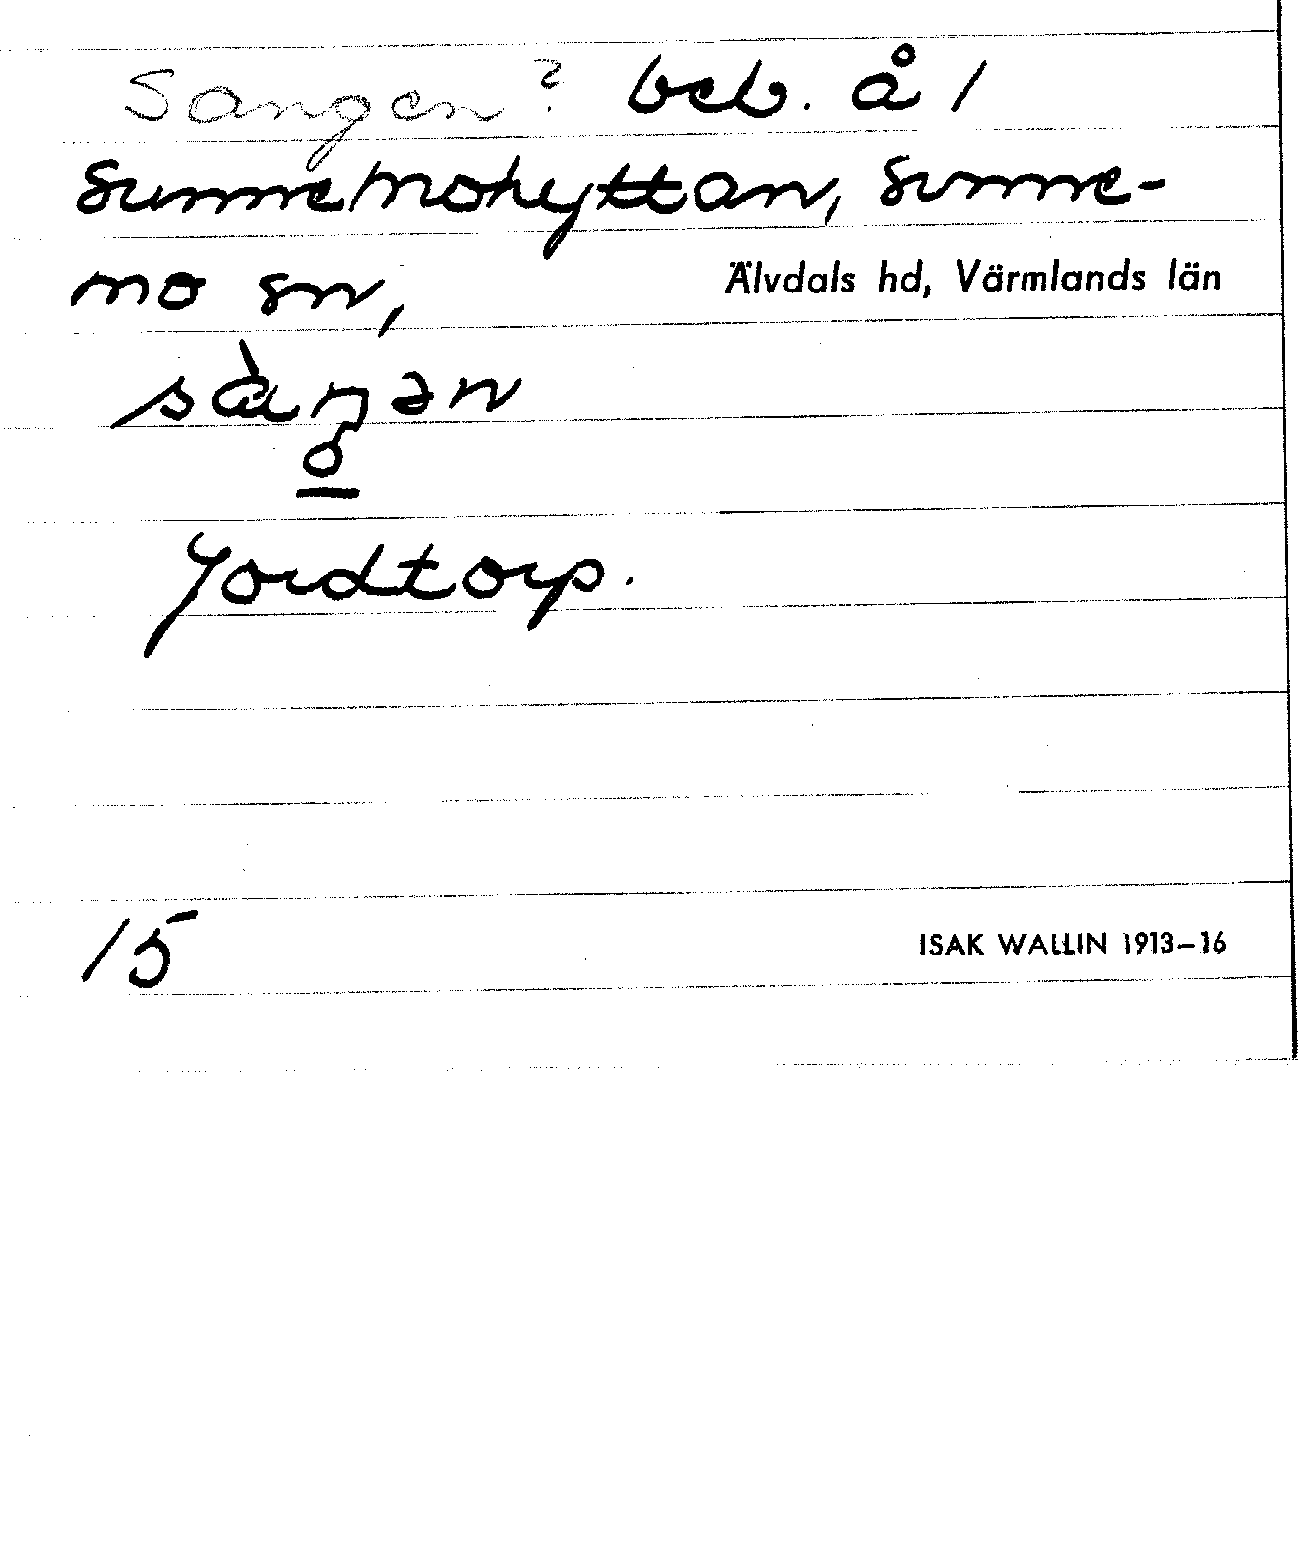 Sangen? beb. å 1
Sunnemohyttan, Sunne-
mo sn, Älvdals hd, Värmlands län
sàŋən
Jordtorp.
15 ISAK WALLIN 1913–16